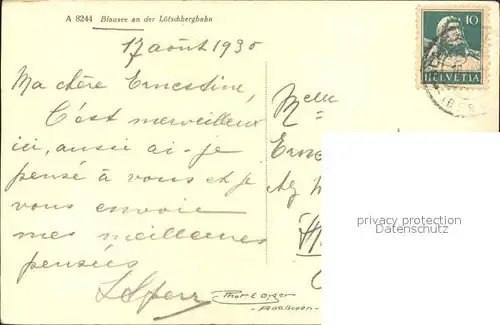 A 8244 Blausee an der Lötschbergbahn
17 août 1930
Ma chère Ernestine,
C'est merveilleux
ici, aussi ai-je
pensé à vous et je
vous envoie
mes meilleures
pensées
Melle
10
HELVETIA
privacy protection
Datenschutz
Phot
Adelboden